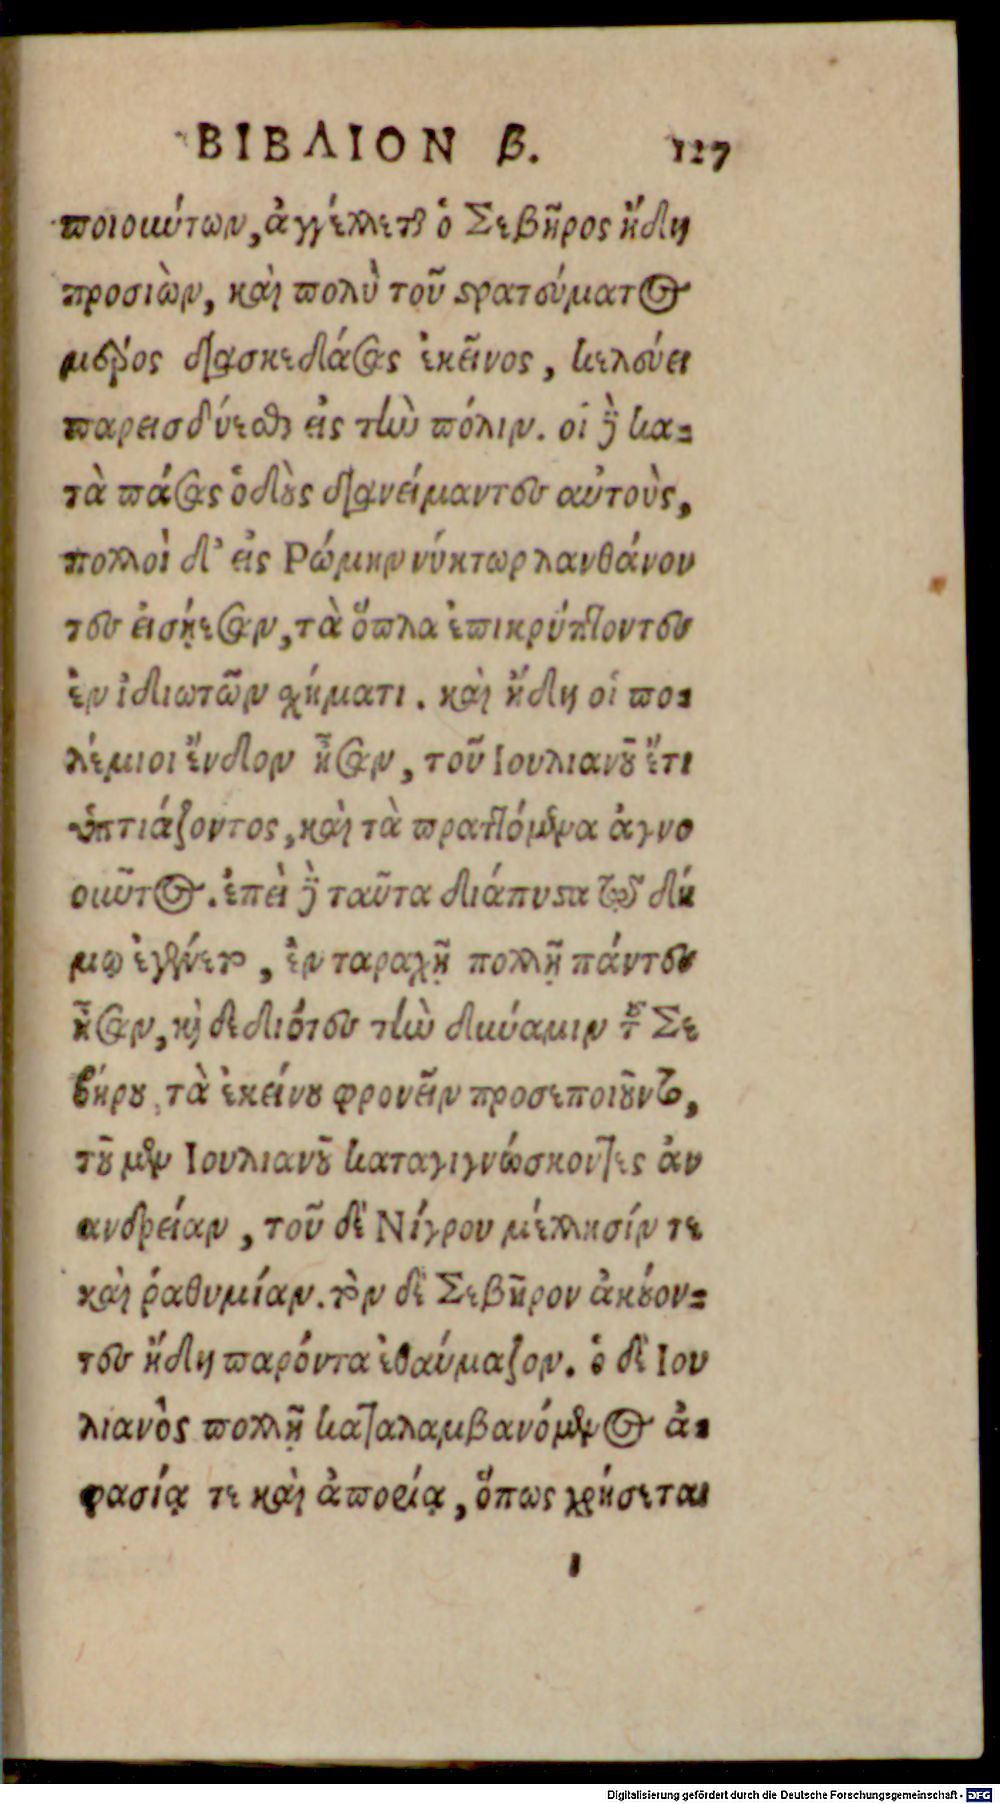 ΒΙΒΛΙΟΝ β. 127
ποιούντων, ἀγγέλλεται ὁ Σεβῆρος ἤδη
προσιὼν, καὶ πολὺ τοῦ στρατεύματος
μέρος διασκεδάσας ἐκεῖνος, κελεύει
παρεισδύεσθαι εἰς τὴν πόλιν. οἱ δὲ κα-
τὰ πάσας ὁδοὺς διανείμαντες αὑτοὺς,
πολλοὶ δ' εἰς Ρώμην νύκτωρ λανθάνον
τες εἰσῄεσαν, τὰ ὅπλα ἐπικρύπτοντες
ἐν ἰδιωτῶν σχήματι. καὶ ἤδη οἱ πο-
λέμιοι ἔνδον ἦσαν, τοῦ Ιουλιανοῦ ἔτι
ὑπτιάζοντος, καὶ τὰ πραττόμενα ἀγνο
οῦντος. ἐπεὶ δὲ ταῦτα διάπυστα τῷ δή
μῳ ἐγένετο, ἐν ταραχῇ πολλῇ πάντες
ἦσαν, καὶ δεδιότες τὴν δύναμιν τοῦ Σε
βήρου, τὰ ἐκείνου φρονεῖν προσεποιοῦντο,
τοῦ μὲν Ιουλιανοῦ καταγιγνώσκοντες ἀν
ανδρείαν, τοῦ δὲ Νίγρου μέλλησίν τε
καὶ ῥαθυμίαν. τὸν δὲ Σεβῆρον ἀκούον-
τες ἤδη παρόντα ἐθαύμαζον. ὁ δὲ Ιου
λιανὸς πολλῇ καταλαμβανόμενος ἀ-
φασίᾳ τε καὶ ἀπορίᾳ, ὅπως χρήσεται
ι
Digitalisierung gefördert durch die Deutsche Forschungsgemeinschaft - DFG